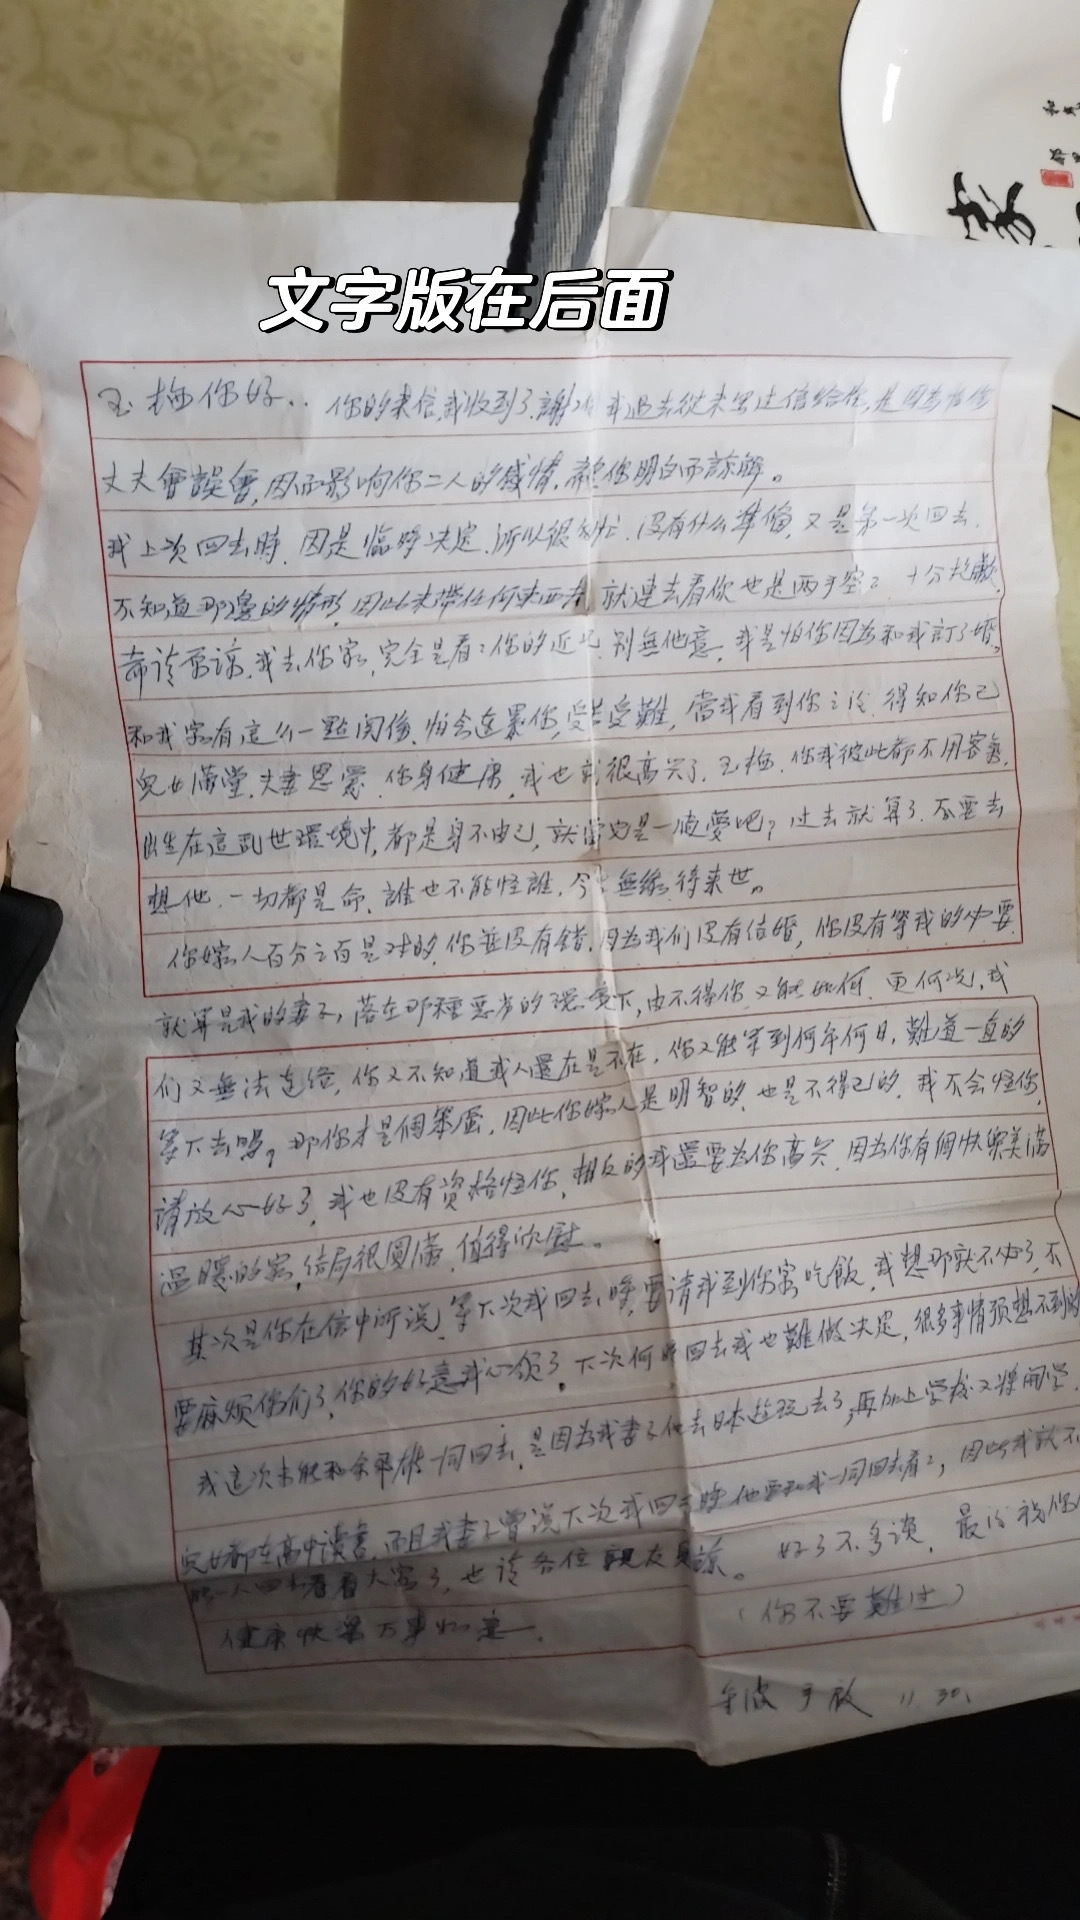 文字版在后面
家
玉梅你好.. 你的来信,我收到了,謝謝 我过去從未写过信给你,是因为怕你
丈夫會誤會,因而影响你二人的感情,願你明白而諒解。
我上次回去時,因是臨時决定,所以很匆忙,没有什么準備,又是第一次回去,
不知道那邊的情形,因此未带任何東西去,就連去看你也是两手空空,十分抱歉,
希请原谅,我去你家,完全是看看你的近况,别無他意,我是怕你因为和我訂了婚,
和我家有這么一點関係,怕会連累你,受苦受難,當我看到你之後,得知你已
兒女滿堂,夫妻恩愛,你身健康,我也就很高兴了,玉梅,你我彼此都不用客氣,
出生在這乱世環境中,都是身不由己,就當它是一個夢吧?过去就算了,不要去
想他,一切都是命,誰也不能怪誰,今生無緣,待来世。
你嫁人百分之百是对的,你並没有錯,因为我们没有结婚,你没有等我的必要
就算是我的妻子,落在那種惡劣的環境下,由不得你,又能如何,更何况,我
们又無法连络,你又不知道我人還在是不在,你又能等到何年何日,難道一直的
等下去嗎?那你才是個笨蛋,因此你嫁人是明智的,也是不得已的,我不会怪你,
請放心好了,我也没有資格怪你,相反的我還要为你高兴,因为你有個快樂美滿
温暖的家,结局很圓滿,值得欣慰。
其次是你在信中所说,等下次我回去時,要请我到你家吃飯,我想那就不必了,不
要麻烦你们了,你的好意我心领了,下次何時回去我也難做决定,很多事情预想不到的
我这次未能和余 一同回去,是因为我妻子他去日本遊玩去了,再加上学校又将開学,
兒女都在高中读書,而且我妻子曾说下次我回去時他要和我一同回去看看,因此我就不
能一人回去看看大家了,也请各位親友見諒。 好了不多谈, 最后祝你
健康快樂万事如意. (你不要難过)
手啟 11.30.